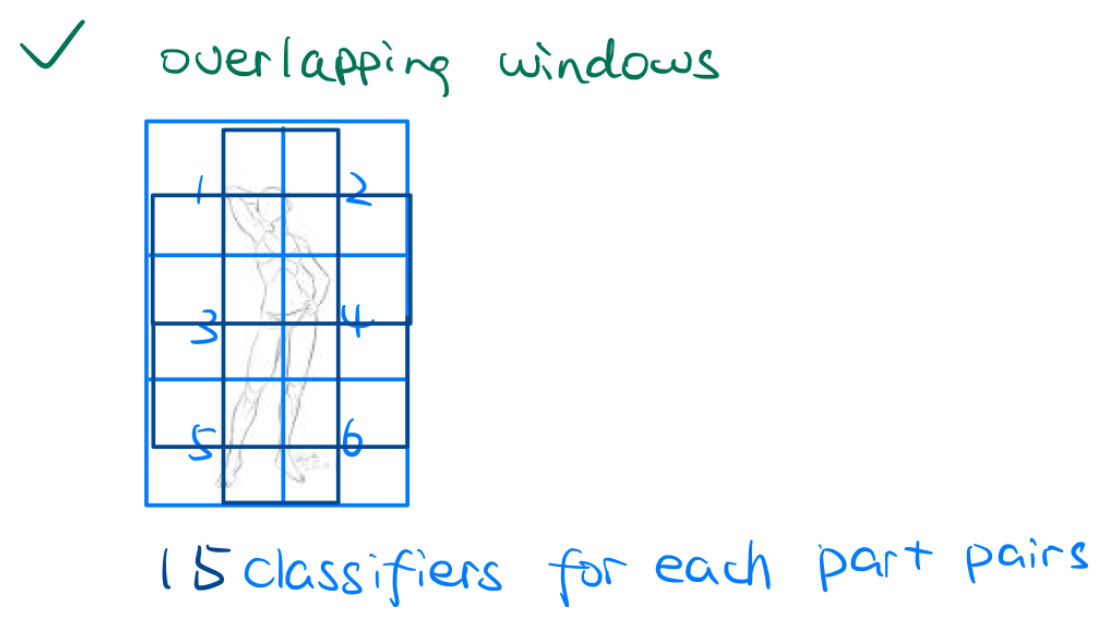 ✓ overlapping windows
1 2
3 4
5 6
15 classifiers for each part pairs